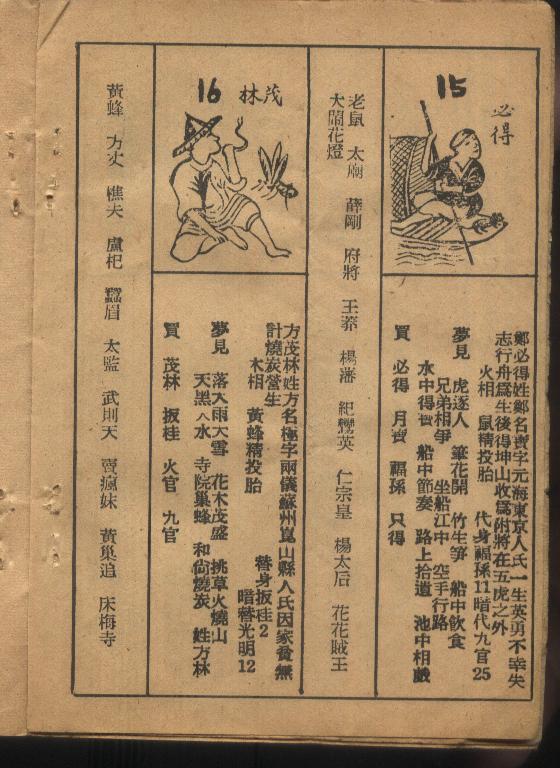 15
必得
鄭必得姓鄭名寶字元海東京人氏一生英勇不幸失
志行舟爲生後得坤山收爲附將在五虎之外
火相 鼠精投胎 代身福孫11暗代九官25
夢見 虎逐人 筆花開 竹生笋 船中飲食
兄弟相爭 坐船江中 空手行路
水中得寶 船中節婺 路上拾遺 池中相戲
買 必得 月寶 福孫 只得
老鼠 太廟 薛剛 府將 王莽 楊藩 紀鸞英 仁宗皇 楊太后 花花賊王
大閙花燈
16
茂林
方茂林姓方名極字兩儀蘇州崑山縣人氏因家貧無
計燒炭營生
木相 黃蜂精投胎 替身扳桂2
暗替光明12
夢見 落大雨大雪 花木茂盛 挑草火燒山
天黑入水 寺院巢蜂 和尙燒炭 姓方林
買 茂林 扳桂 火官 九官
黃蜂 方丈 樵夫 盧杞 蠶眉 太監 武則天 賣瘋妹 黃巢追 床梅寺